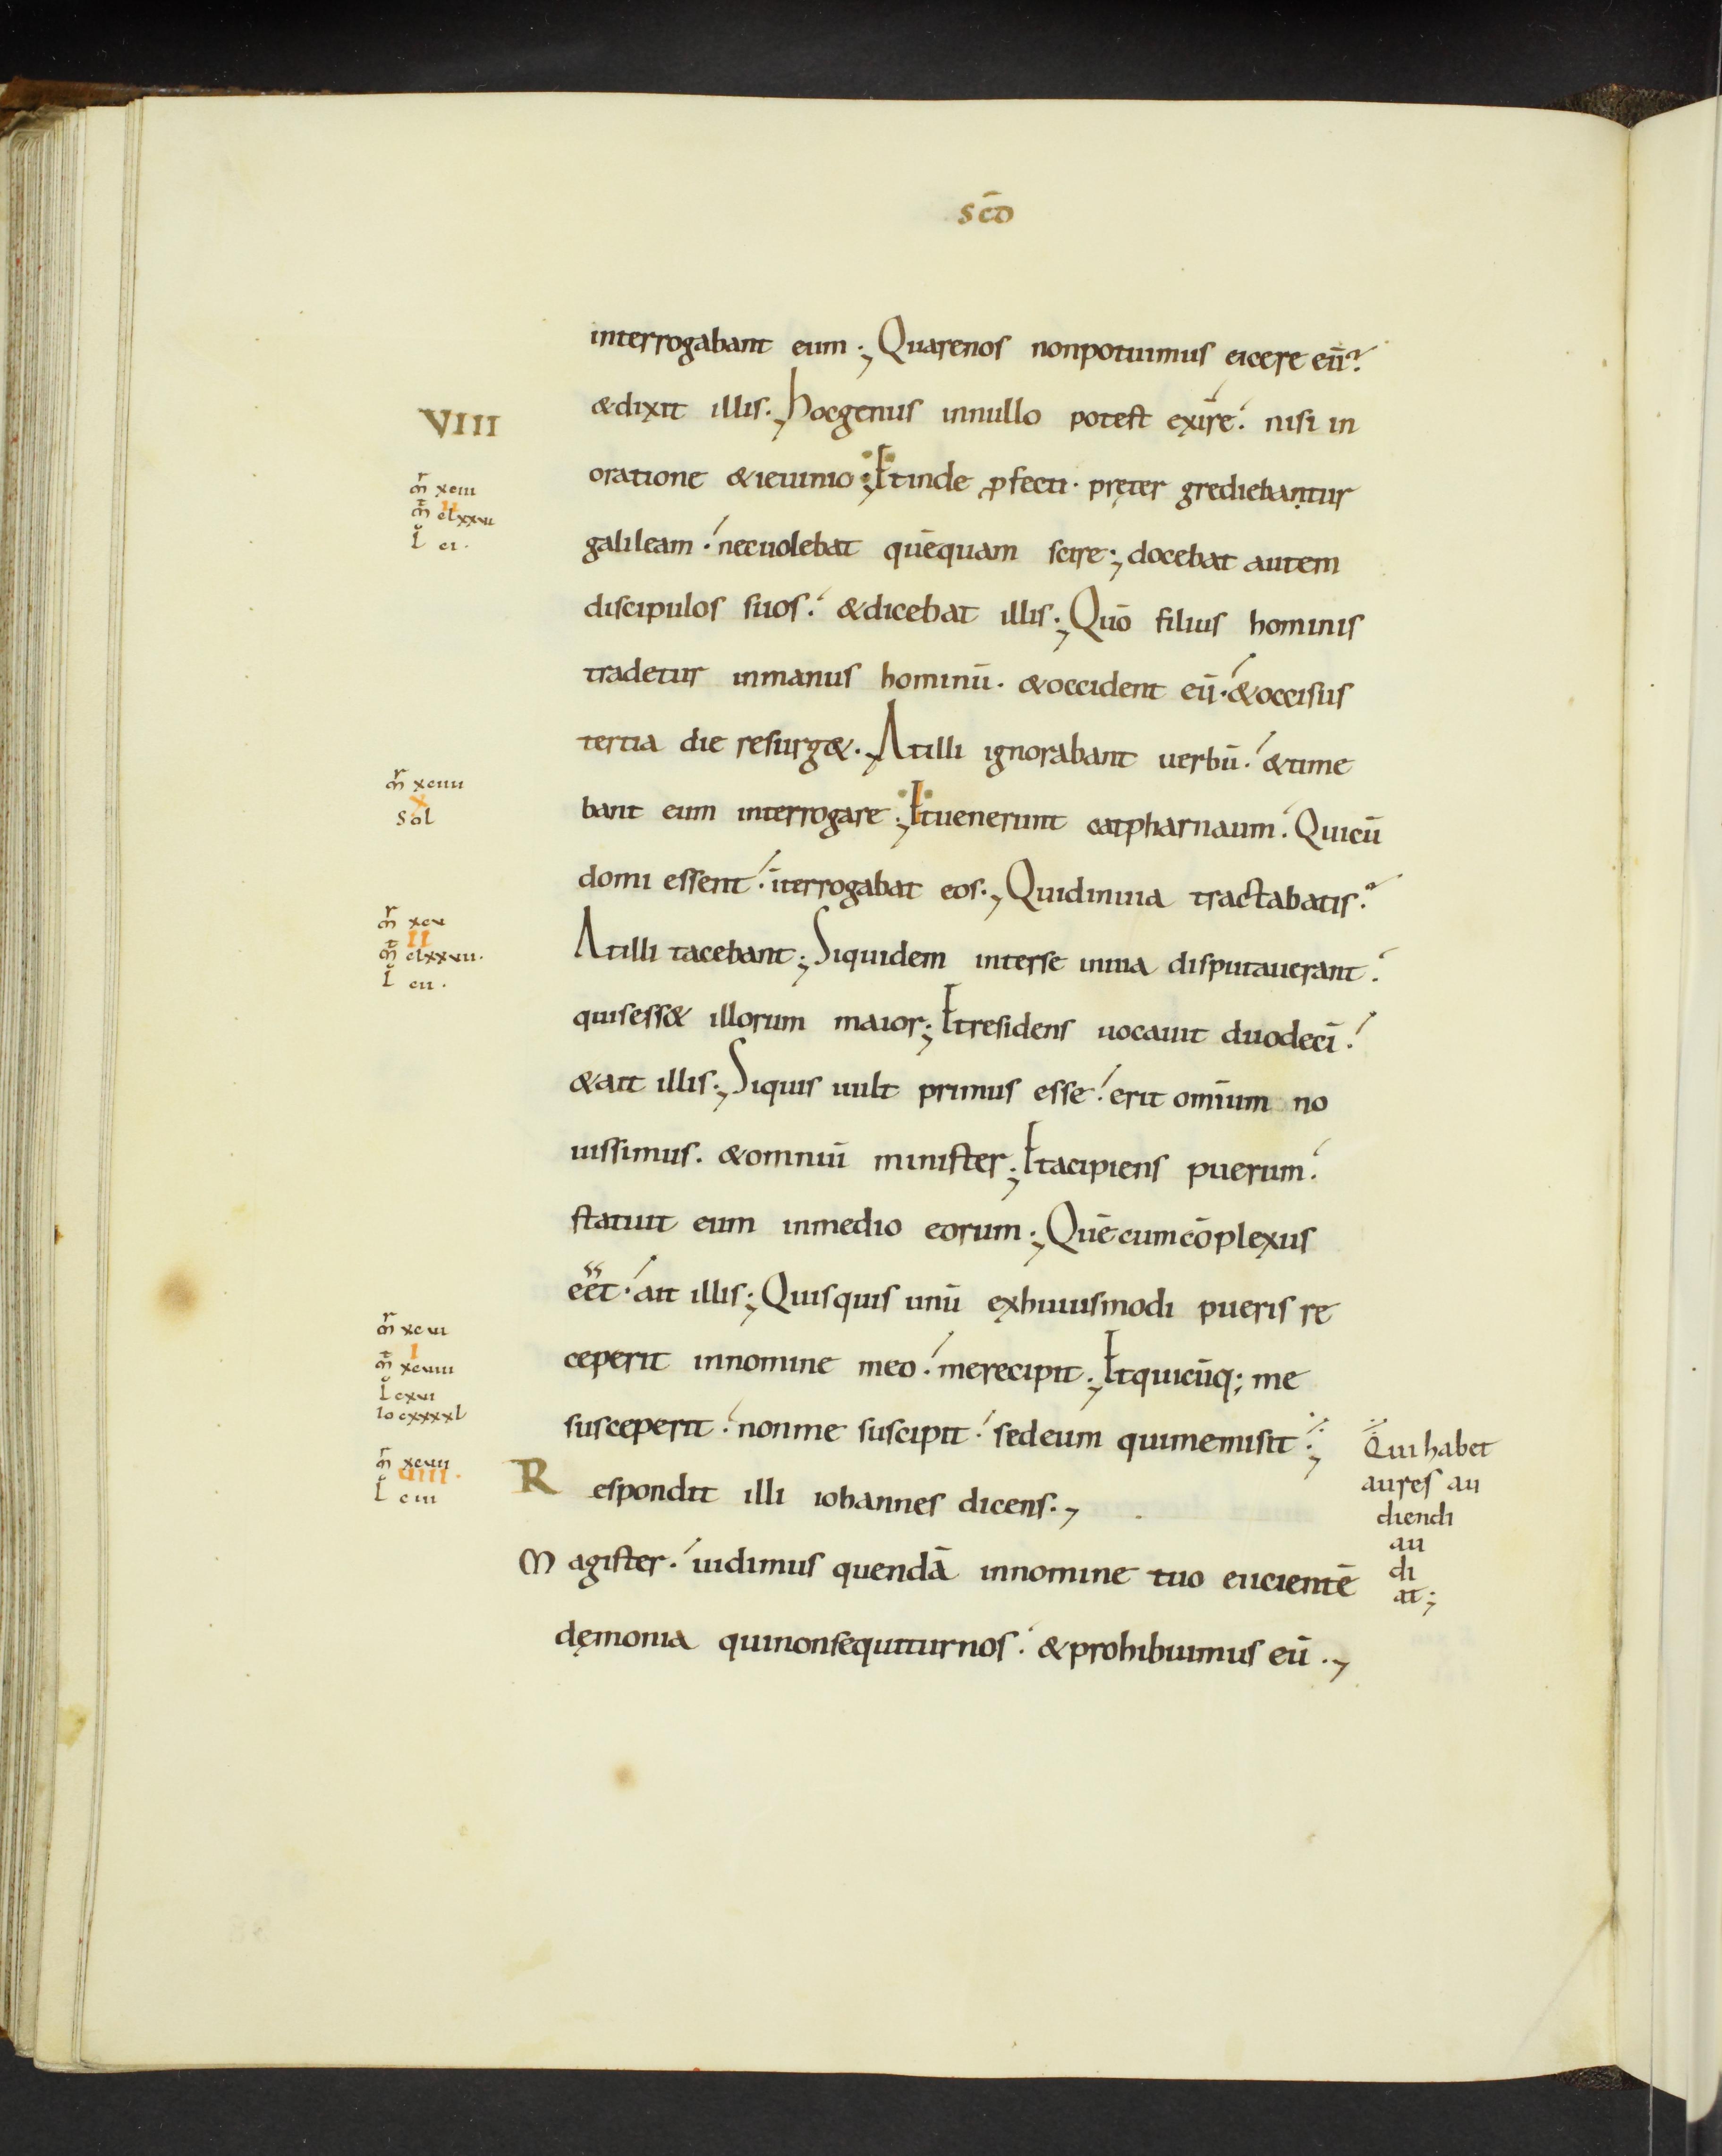 sc̄d
interrogabant eum·, Quarenos nonpotuimus eicere eū?
&dixit illis·, hocgenus innullo potest exire· nisi in
VIII
oratione &ieiunio; Etinde ꝓfecti· pręter grediebantur
m̄r xciii
II
m̄t clxxvi
l̄ ci·
galileam· necuolebat quēquam scire; docebat autem
discipulos suos· &dicebat illis·, Quō filius hominis
tradetur inmanus hominū· &occident eū· &occisus
tertia die resurg&·, Atilli ignorabant uerbū· &time
bant eum interrogare·, Etuenerunt capharnaum· Quicū
m̄r xciiii
X
Sol
domi essent· īterrogabat eos·, Quidinuia tractabatis?
Atilli tacebant; Siquidem interse inuia disputauerant·
m̄r xcv
II
m̄t clxxvii·
l̄ cii·
quisess& illorum maior; Etresidens uocauit duodecī·
&ait illis·, Siquis uult primus esse· erit omīum no
uissimus· &omniū minister·, Etacipiens puerum·
statuit eum inmedio eorum·, Quēcumcōplexus
eet· ait illis·, Quisquis unū exhuiusmodi pueris re
ceperit innomine meo· merecipit·, Etquicūq; me
m̄r xcvi
I
m̄t xcviii
l̄ cxvi
Io cxxxxl
susceperit· nonme suscipit· sedeum quimemisit·,
Qui habet
aures au
diendi
au
di
at;
Respondit illi iohannes dicens·,
m̄r xcvii
VIII·
l̄ ciii
Magister· uidimus quendā innomine tuo eiicientē
dęmonia quinonsequiturnos· &prohibuimus eū·,